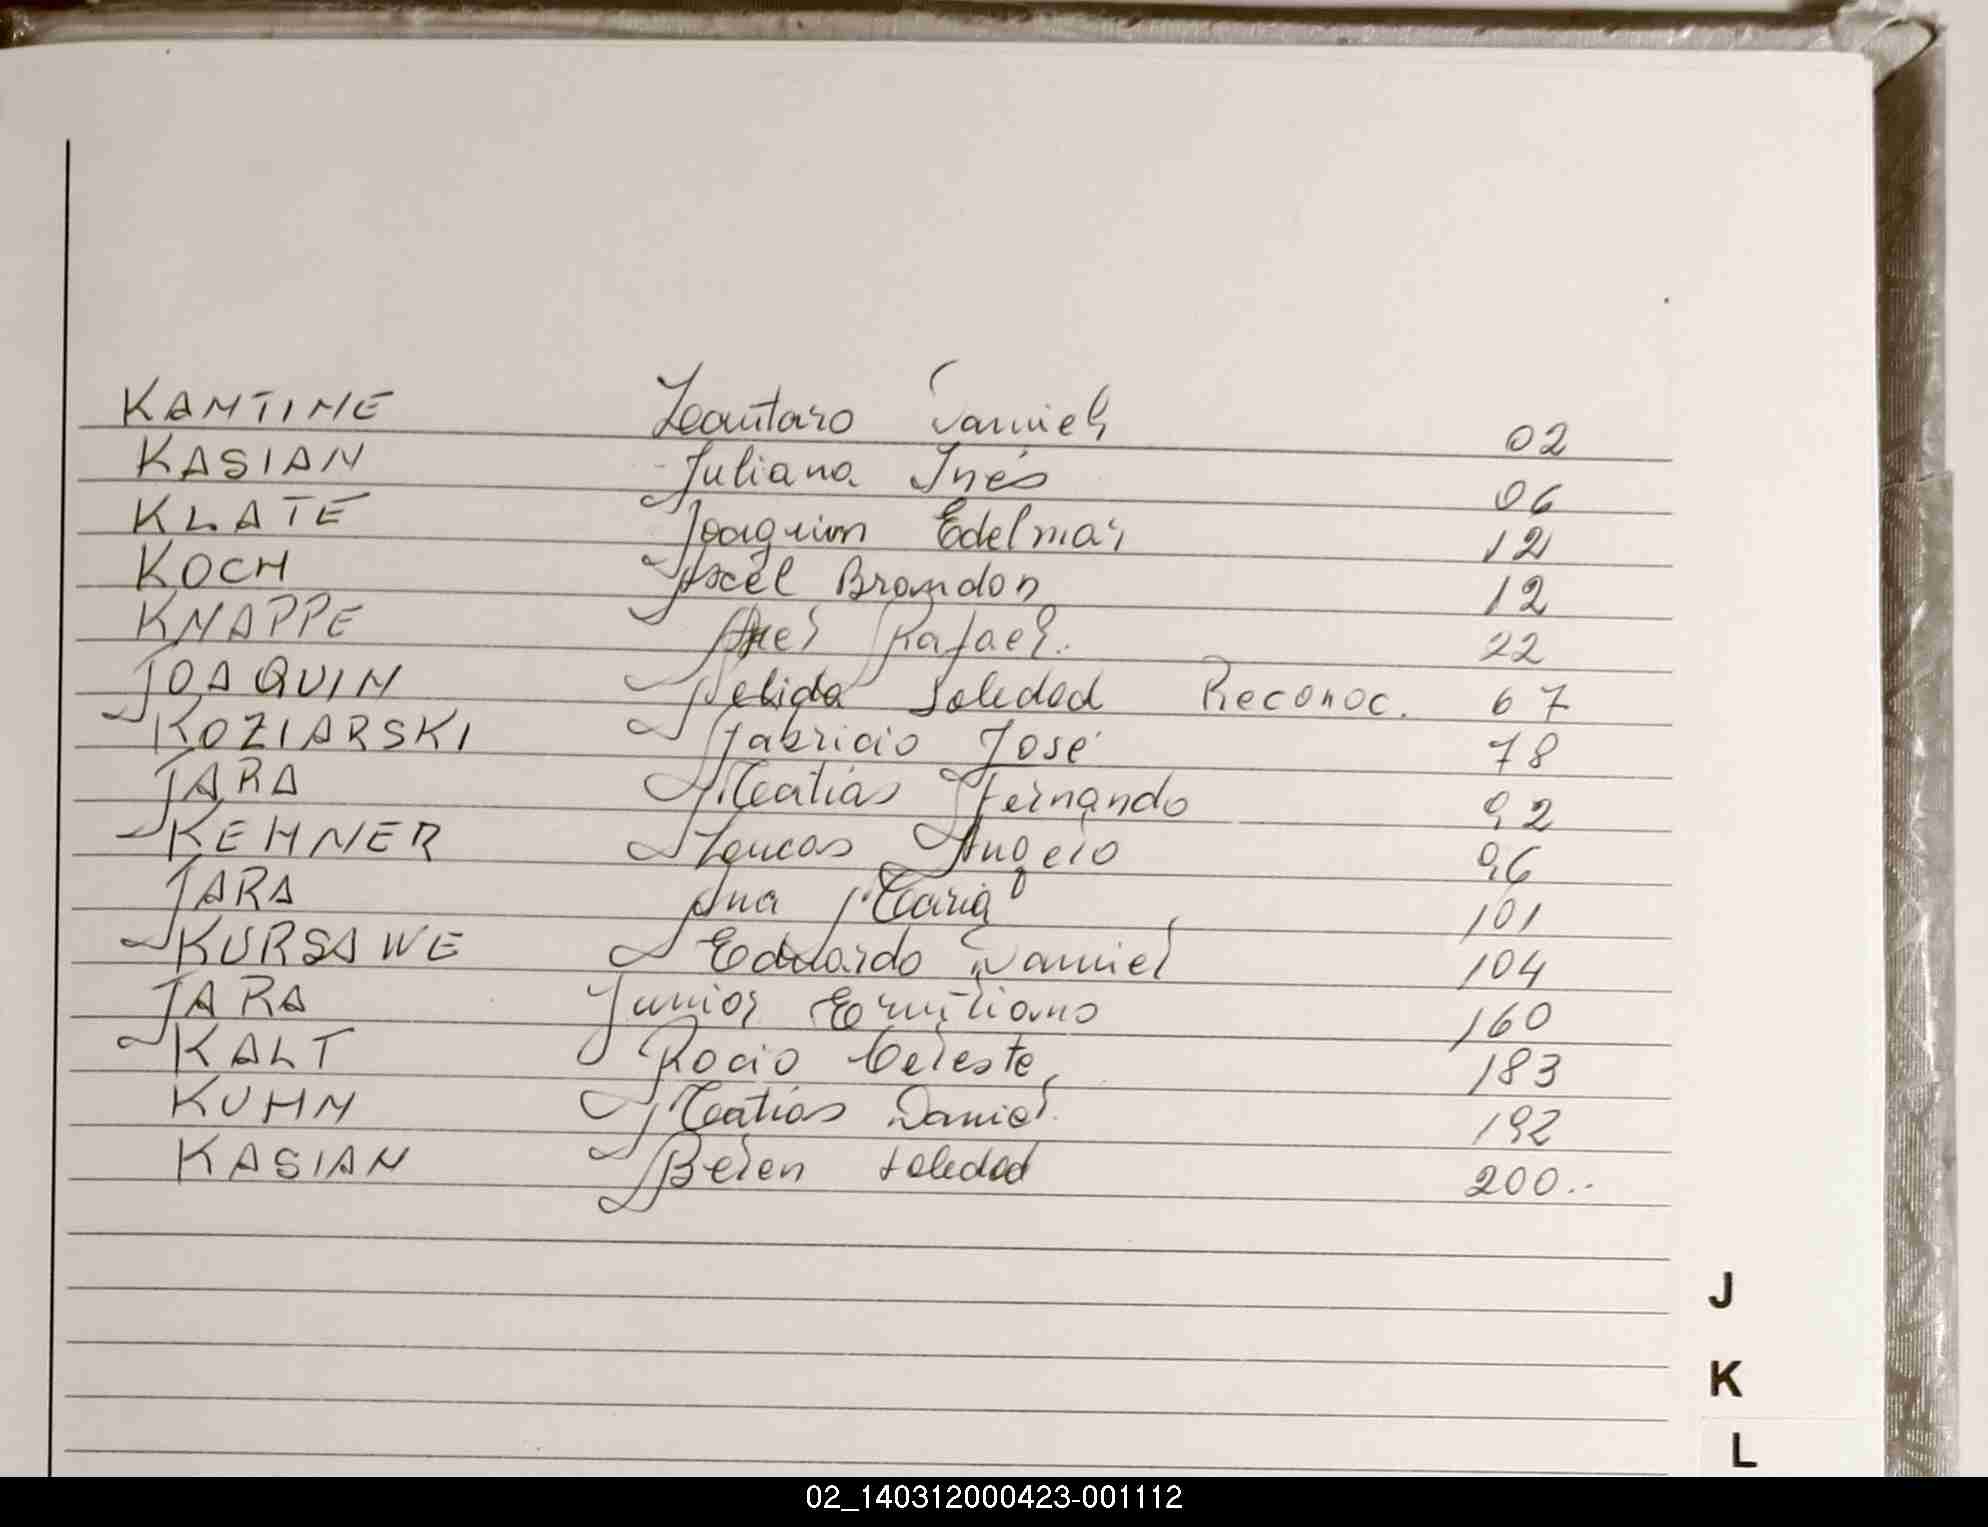 KAMTINE Leautaro Daniel 02
KASIAN Juliana Inés 06
KLATE Joaquim Edelmar 12
KOCH Axel Brandon 12
KNAPPE Axel Rafael. 22
JOAQUIN Soledad Reconoc. 67
KOZIARSKI Fabricio José 78
JARA Matias Fernando 92
KEHNER Loucas Angelo 96
JARA Ana Maria 101
KURSAWE Eduardo Daniel 104
JARA Junior Emiliano 160
KALT Rocio Celeste 183
KUHN Matias Daniel 192
KASIAN Belen Soledad 200..
J
K
L
02_140312000423-001112